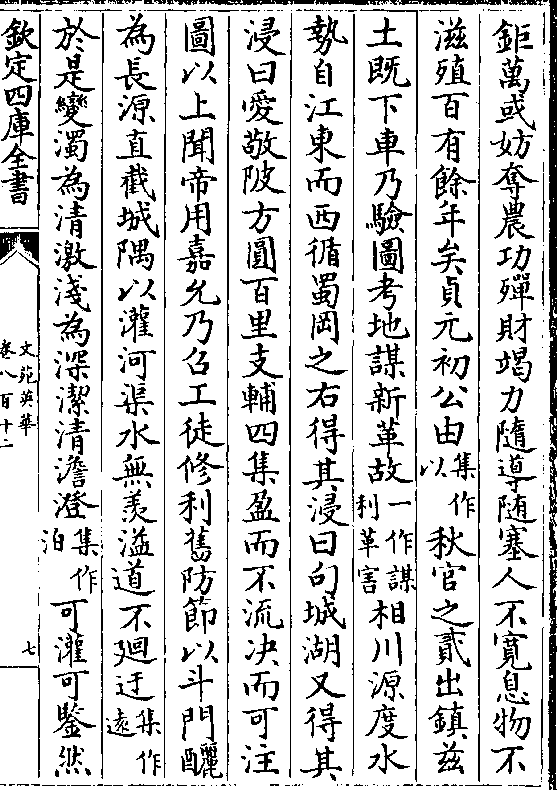 鉅萬或妨奪農功殫財竭力隨導随塞人不寛息物不
滋殖百有餘年矣貞元初公由集作以秋官之貳出鎮兹
土既下車乃驗圖考地謀新革故一作謀利革害相川源度水
勢自江東而西循蜀岡之右得其浸曰句城湖又得其
浸曰愛敬陂方圓百里支輔四集盈而不流决而可注
圖以上聞帝用嘉允乃召工徒修利舊防節以斗門釃
為長源直截城隅以灌河渠水無羨溢道不廻迂集作遠
於是變濁為清激淺為深潔清澹澄集作泊可灌可鑒然
欽定四庫全書
文苑英華
卷八百十二
七